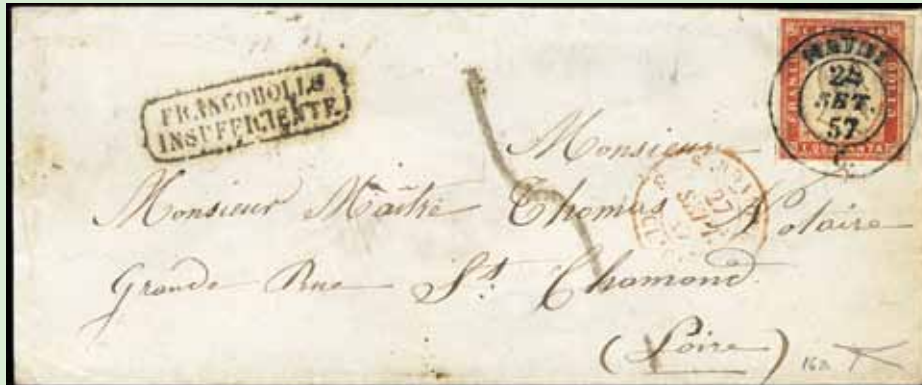 FRANCOBOLLO
INSUFFICIENTE
25
SET.
57
27
SEPT.
Monsieur
Monsieur Maître Thomas Notaire
Grande Rue St. Chamond
(Loire)